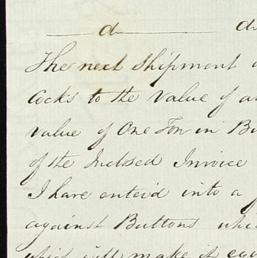 d d
The next Shipment
Cocks to the Value of
Value of One Ton in
of the Inclosed Invoice
I have enter'd into a
against Buttons
which will make it